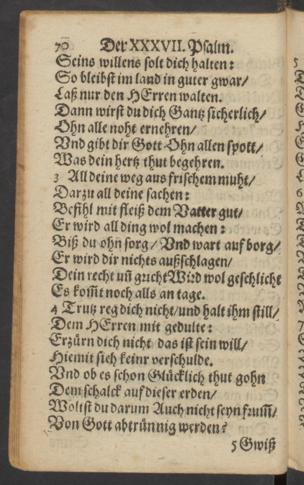 70 Der XXXVII. Psalm.
Seins willens solt dich halten:
So bleibst im land in guter gwar/
Laß nur den HErren walten.
Dann wirst du dich Gantz sicherlich/
Ohn alle noht ernehren/
Vnd gibt dir Gott Ohn allen spott/
Was dein hertz thut begehren.
3 All deine weg aus frischem muht/
Darzu all deine sachen:
Befihl mit fleiß dem Vatter gut/
Er wird all ding wol machen:
Biß du ohn sorg/ Vnd wart auf borg/
Er wird dir nichts außschlagen/
Dein recht uñ gricht Wird wol geschlicht
Es kom̃t noch alls an tage.
4 Trutz reg dich nicht/ und halt ihm still/
Dem HErren mit gedulte:
Erzürn dich nicht/ das ist sein will/
Hiemit sich keinr verschulde.
Vnd ob es schon Glücklich thut gohn
Dem schalck auf dieser erden/
Woltst du darum Auch nicht seyn frum̃/
Von Gott abtrünnig werden?
5 Gwiß